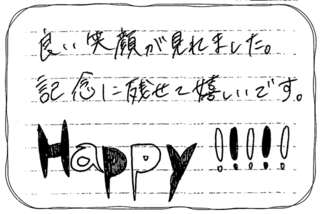 良い笑顔が見れました。
記念に残せて嬉しいです。
Happy !!!!!